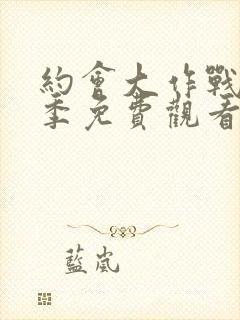 約會大作戰
季免費觀看
藍嵐